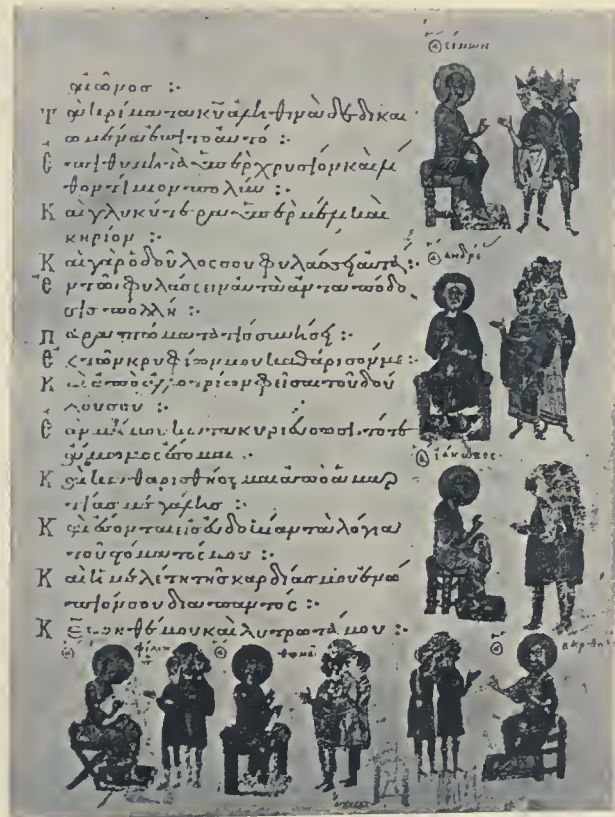 αἰῶνος :·
Τὰ κρίματα κυ ἀληθινὰ δεδικαι
ωμένα ἐπιτοαυτό :·
Ἐπιθυμητὰ ὑπὲρ χρυσίον καὶ λί
θον τίμιον πολύν :·
Καὶ γλυκύτερα ὑπὲρ μέλι καὶ
κηρίον :·
Καὶ γὰρ ὁ δοῦλος σου φυλάσσει αὐτά :·
Ἐν τῶι φυλάσσειν αὐτὰ ἀνταπόδο
σις πολλή :·
Παραπτώματα τίς συνήσει :·
Ἐκ τῶν κρυφίων μου καθάρισον με :·
Καὶ ἀπὸ ἀλλοτρίων φεῖσαι τοῦ δού
λου σου :·
Ἐὰν μή μου κατακυριεύσωσι τότε
ἄμωμος ἔσομαι
Καὶ καθαρισθήσομαι ἀπὸ ἁμαρ
τίας μεγάλης
Καὶ ἔσονται εἰς εὐδοκίαν τὰ λόγια
τοῦ στόματός μου :·
Καὶ ἡ μελέτη τῆς καρδίας μου ἐνώ
πιόν σου διαπαντός :·
Κε βοηθέ μου καὶ λυτρωτά μου :·
CΙΜΩΝ
ΑΝΔΡΕ
ΙΑΚΩΒΟC
ΦΙΛΙΠ
ΘΩΜΑ
ΒΑΡΘ